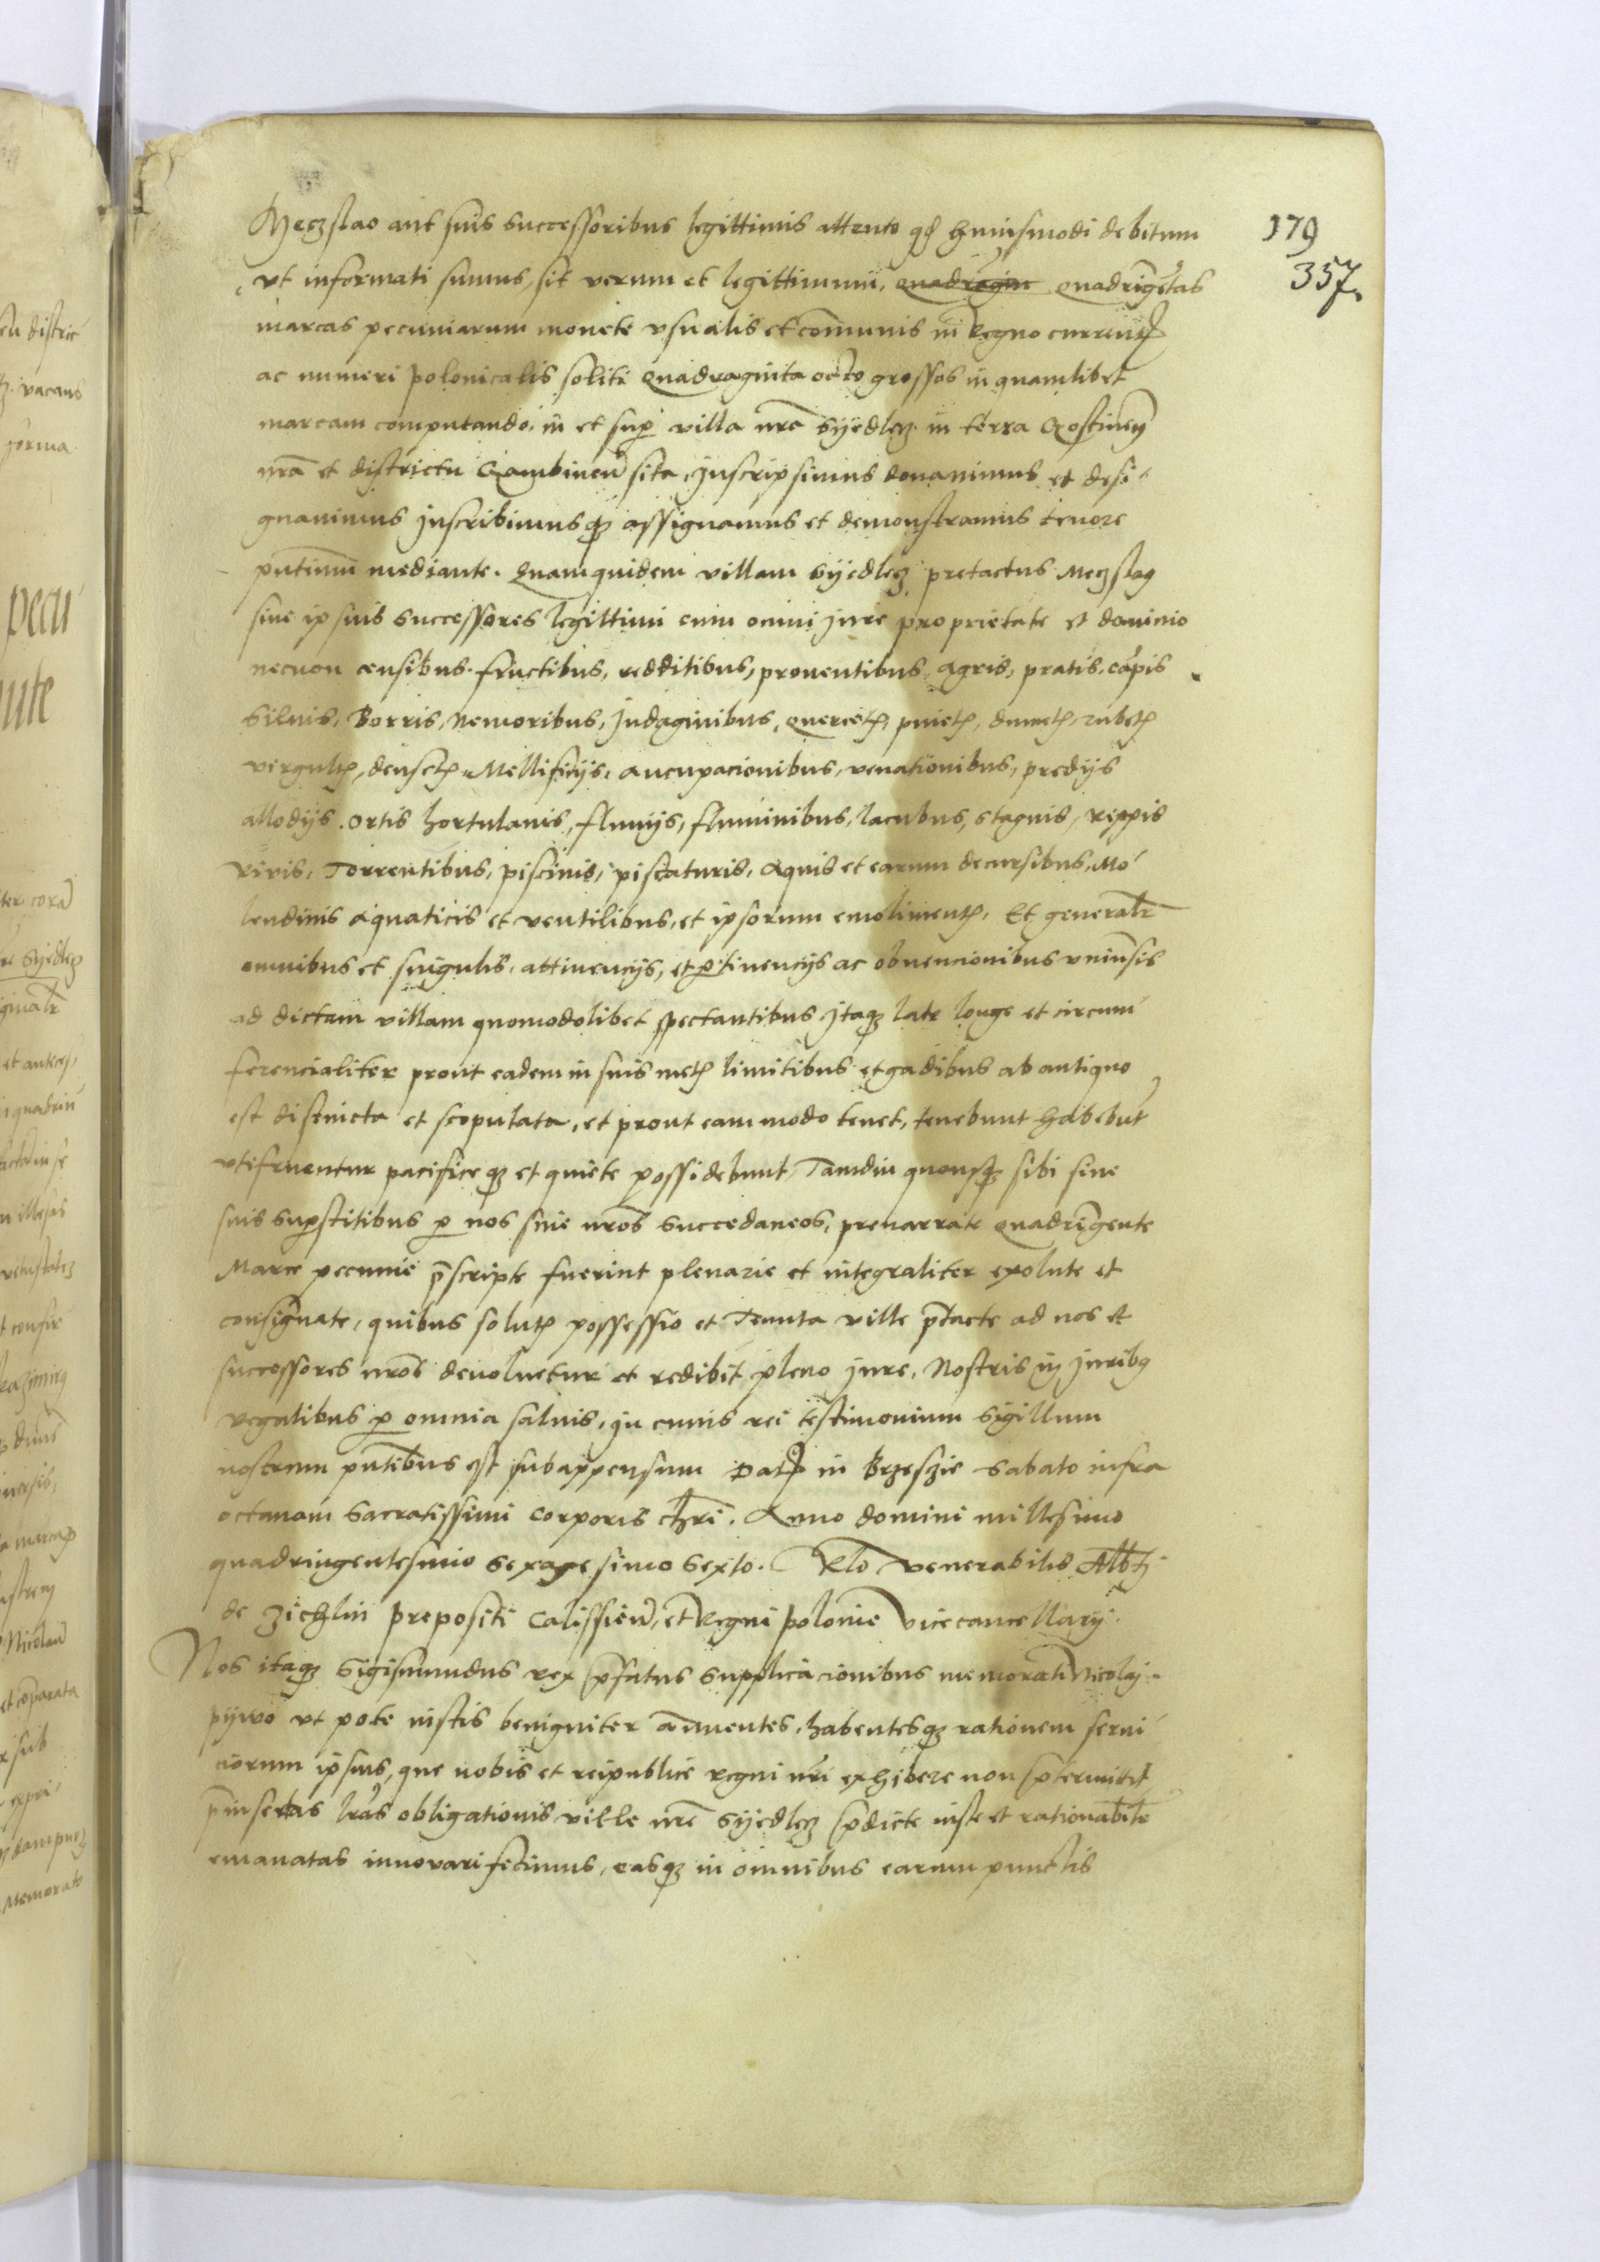 Meczslao aut suis successoribus legittimis attento qd huiusmodi debitum
179
ut informati sumus, sit verum et legittimum, quadragin quadringetas
357
marcas pecuniarum monete usualis et comunis in Regno current
ac numeri polonicalis soliti quadraginta octo grossos in quamlibet
marcam computando, in et sup villa nra Syedlecz in terra Gostinen
nra et districtu Gambinen sita, Inscripsimus donavimus et desi
gnavimus Inscribimusq assignamus et demonstramus tenore
pntium mediante. Quamquidem villam Syedlecz pretactus Meczslaq
sive ipsius successores legittimi cum omni jure proprietate et dominio
necnon censibus, fructibus, redditibus, proventibus, agris, pratis, capis
Silvis, Borris, Nemoribus, Indaginibus, quercet, pinet, dumet, rubet
virgult, denset, Mellificijs, aucupacionibus, venationibus, predijs
allodijs, ortis hortulanis, fluvijs, fluminibus, lacubus, stagnis, rippis
rivis, Torrentibus, piscinis, piscaturis, Aquis et earum decursibus, Mo
lendinis aquaticis et ventilibus, et ipsorum emoliment, Et generalr
omnibus et singulis, attinencijs, et ptinencijs ac obvencionibus universis
ad dictam villam quomodolibet spectantibus Itaq late longe et circum
ferencialiter prout eadem in suis met limitibus et gadibus ab antiquo
est distincta et scopulata, et prout eam modo tenet, tenebunt habebut
utifruentur pacifice q et quiete possidebunt, Tamdiu quousq sibi sive
suis supstitibus p nos sive nros succedaneos, prenarrate quadringente
Marce pecunie pscripte fuerint plenarie et integraliter exolute et
consignate, quibus solut possessio et Tenuta ville ptacte ad nos et
successores nros devoluetur et redibit pleno jure, Nostris in juribq
regalibus p omnia salvis, in cuius rei testimonium Sigillum
nostrum pntibus est subappensum Dat in Brzesczie Sabato infra
octavam Sacratissimi Corporis chri. Anno domini millesimo
quadringentesimo sexagesimo sexto. Rlo Venerabilis Albt
de Zichlin prepositi Calissien, et Regni polonie vicecancellarij.
Nos itaq Sigismundus rex pfatus supplicacionibus memorati Nicolai
pywo ut pote iustis benigniter annuentes, habentesq rationem servi
ciorum ipsius, que nobis et reipublice regni nri exhibere non ptermittit
pinsertas lras obligationis ville nre Syedlecz pdicte iuste et rationabilr
emanatas innovari fecimus, easq in omnibus earum punctis